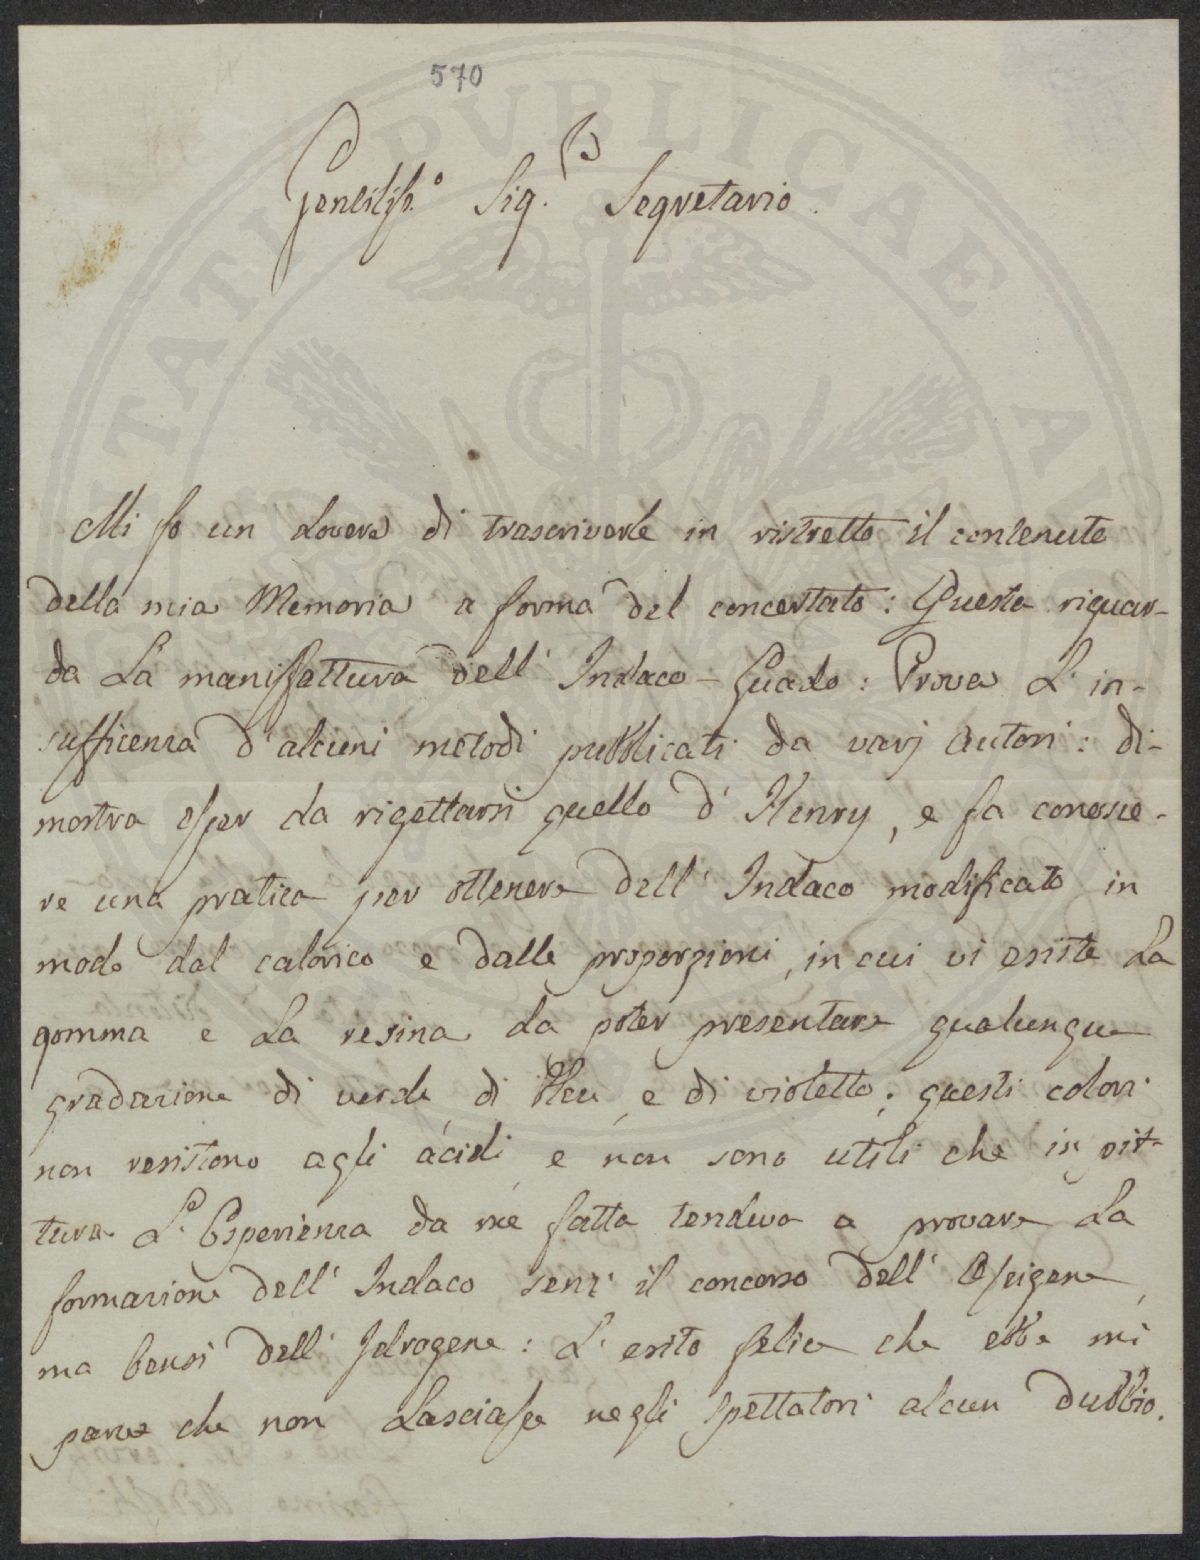 570
Gentilis.o Sig.r Segretario
Mi fo un dovere di trascriverle in ristretto il contenuto
della mia Memoria a forma del concertato: Questa riguar-
da la manifattura dell' Indaco-Guado: Prova l' in-
sufficenza d'alcuni metodi pubblicati da varj Autori: di-
mostra esser da rigettarsi quello d' Henry, e fa conosce-
re una pratica per ottenere dell' Indaco modificato in
modo dal calorico e dalle proporzioni, in cui vi esiste la
gomma e la resina da poter presentare qualunque
gradazione di verde di bleu, e di violetto; questi colori
non resistono agli acidi, e non sono utili che in pit-
tura. L' Esperienza da me fatta tendeva a provare la
formazione dell' Indaco senz' il concorso dell' Ossigene,
ma bensì dell' Idrogene: L' esito felice che ebbe mi
parve che non lasciasse negli spettatori alcun dubbio.
SOCIETATI PVBLICAE